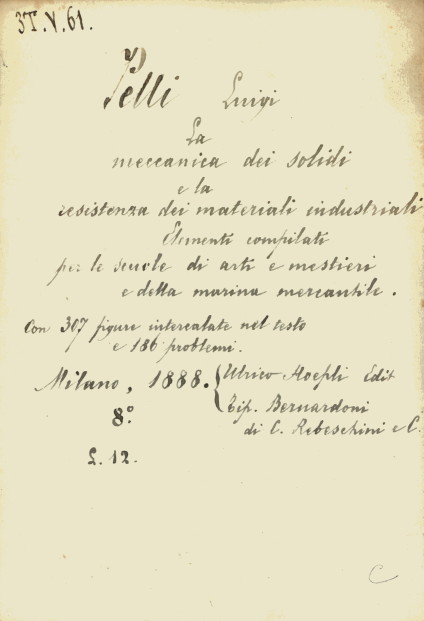 3T.V.61.
Pelli Luigi
La
meccanica dei solidi
e la
resistenza dei materiali industriali
Elementi compilati
per le scuole di arti e mestieri
e della marina mercantile.
Con 307 figure intercalate nel testo
e 186 problemi.
Milano, 1888. { Ulrico Hoepli Edit
8.° Tip. Bernardoni
di C. Rebeschini e C.
L. 12.
C